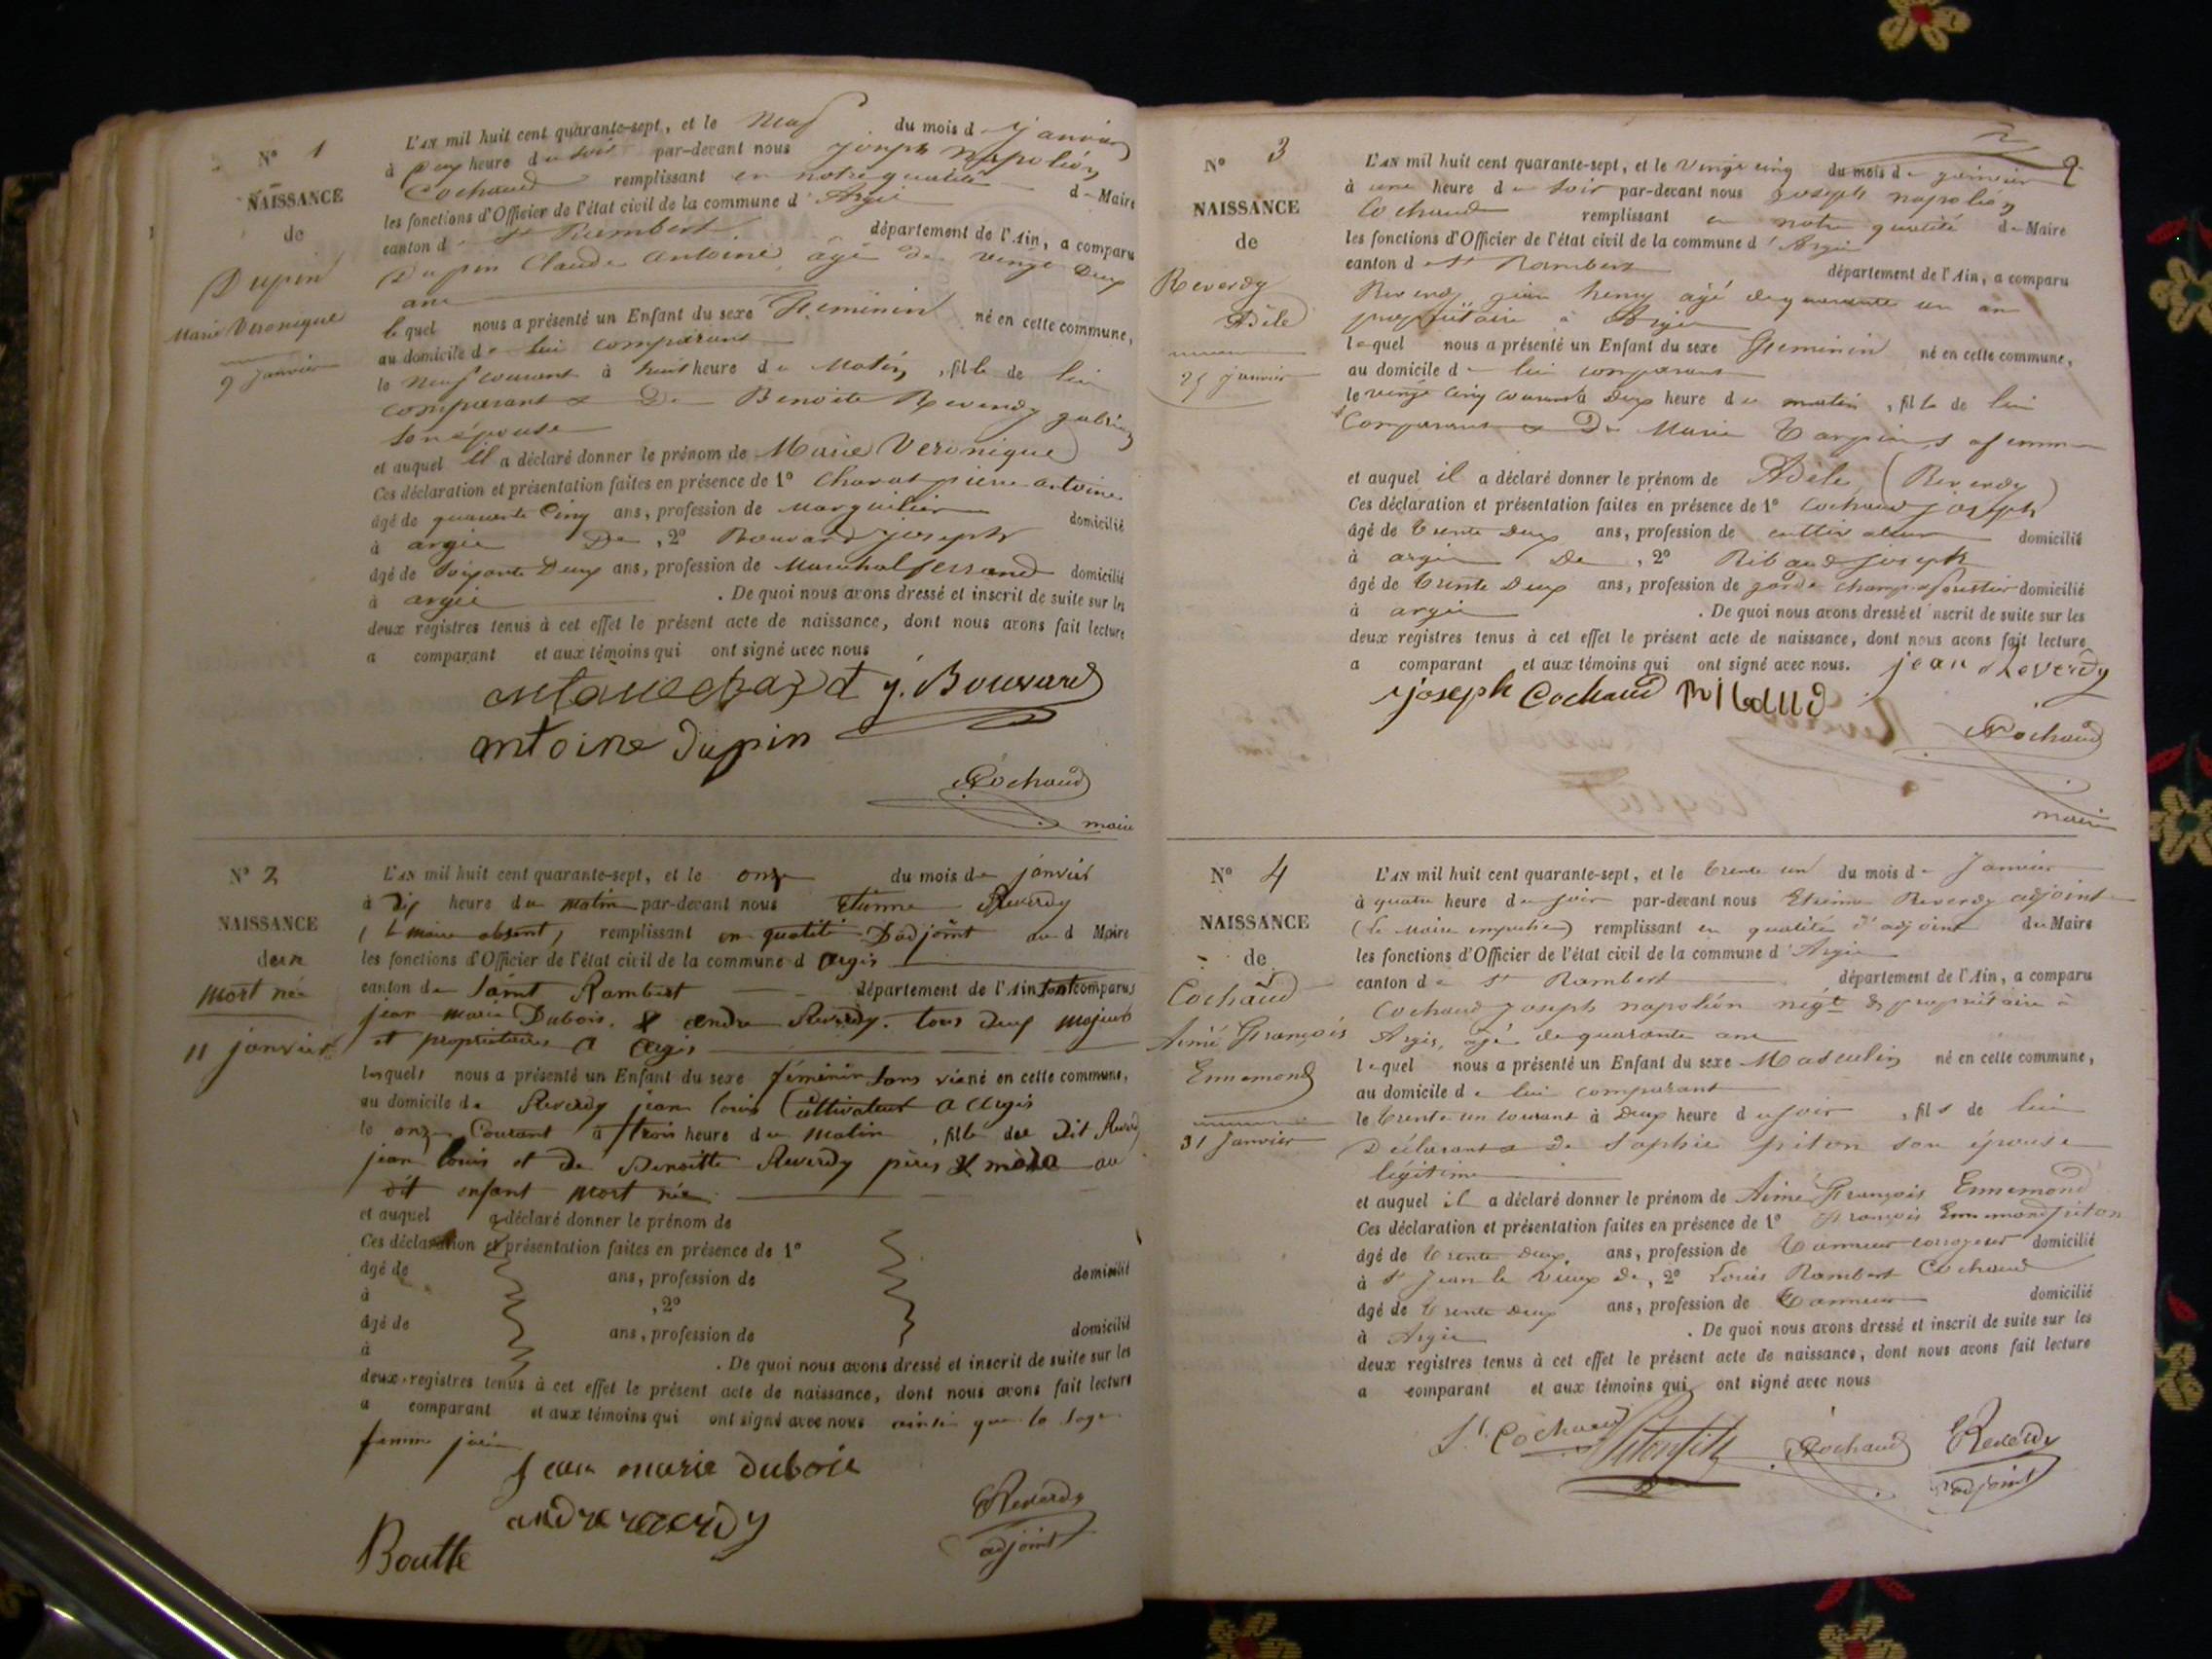 N° 1
NAISSANCE
de
Dupin
Marie Veronique
9 Janvier
L'AN mil huit cent quarante-sept, et le Neuf du mois d janvier
à Deux heure du soir par-devant nous joseph napoléon
Cochaud remplissant en notre qualité de Maire
les fonctions d'Officier de l'état civil de la commune d' Argis
canton de St Rambert département de l'Ain, a comparu
Dupin Claude Antoine âgé de vingt Deux
ans
lequel nous a présenté un Enfant du sexe Feminin né en cette commune,
au domicile de lui comparant
le Neuf courant à huit heure du Matin, fille de lui
comparant & De Benoite Reverdy
son épouse
et auquel il a déclaré donner le prénom de Marie Veronique
Ces déclaration et présentation faites en présence de 1° pierre antoine
âgé de quarante Cinq ans, profession de Marguilier domicilié
à argis De, 2° Bouvard joseph
âgé de Soixante Deux ans, profession de Marechal ferrand domicilié
à argis . De quoi nous avons dressé et inscrit de suite sur les
deux registres tenus à cet effet le présent acte de naissance, dont nous avons fait lecture
a comparant et aux témoins qui ont signé avec nous
j. Bouvard
antoine Dupin
Cochaud
maire
N° 2
NAISSANCE
de un
Mort née
11 janvier
L'AN mil huit cent quarante-sept, et le onze du mois de janvier
à Dix heure du matin par-devant nous Etienne Reverdy
(le maire absent) remplissant en qualité D'adjoint au d Maire
les fonctions d'Officier de l'état civil de la commune d argis
canton de Saint Rambert département de l'Ain sont comparus
jean marie Dubois, & andre Reverdy. tous deux majeurs
et propriétaires a argis
lesquels nous a présenté un Enfant du sexe féminin sans vie né en cette commune,
au domicile de Reverdy jean louis Cultivateur a argis
le onze Courant à trois heure du matin, fille de Dit Reverdy
jean louis et de Benoitte Reverdy pères & mère au
dit enfant mort née
et auquel a déclaré donner le prénom de
Ces déclaration et présentation faites en présence de 1°
âgé de ans, profession de domicilié
à , 2°
âgé de ans, profession de domicilié
à . De quoi nous avons dressé et inscrit de suite sur les
deux registres tenus à cet effet le présent acte de naissance, dont nous avons fait lecture
a comparant et aux témoins qui ont signé avec nous ainsi que la sage
femme jurée
jean marie duboie
andre reverdy
Boutte
E Reverdy
adjoint
2
N° 3
NAISSANCE
de
Reverdy
Adèle
25 janvier
L'AN mil huit cent quarante-sept, et le vingt cinq du mois de janvier
à une heure du soir par-devant nous joseph napoléon
Cochaud remplissant en notre qualité de Maire
les fonctions d'Officier de l'état civil de la commune d' Argis
canton de St Rambert département de l'Ain, a comparu
Reverdy jean henry âgé de quarante un an
propriétaire à Argis
lequel nous a présenté un Enfant du sexe Feminin né en cette commune,
au domicile de lui comparant
le vingt cinq courant à Deux heure du matin, fille de lui
Comparant & De Marie sa femme
et auquel il a déclaré donner le prénom de Adèle (Reverdy)
Ces déclaration et présentation faites en présence de 1° Cochaud joseph
âgé de trente Deux ans, profession de cultivateur domicilié
à argis De, 2° Ribaud joseph
âgé de trente Deux ans, profession de garde champ forestier domicilié
à argis . De quoi nous avons dressé et inscrit de suite sur les
deux registres tenus à cet effet le présent acte de naissance, dont nous avons fait lecture
a comparant et aux témoins qui ont signé avec nous. jean Reverdy
joseph Cochaud Ribaud
Cochaud
maire
N° 4
NAISSANCE
de
Cochaud
Aimé François
Ennemond
31 Janvier
L'AN mil huit cent quarante-sept, et le trente un du mois de Janvier
à quatre heure du soir par-devant nous Etienne Reverdy adjoint
(le Maire empêché) remplissant en qualité d'adjoint du Maire
les fonctions d'Officier de l'état civil de la commune d' Argis
canton de St Rambert département de l'Ain, a comparu
Cochaud joseph napoléon négt & propriétaire à
Argis, âgé de quarante ans
lequel nous a présenté un Enfant du sexe Masculin né en cette commune,
au domicile de lui comparant
le trente un courant à Deux heure du soir, fils de lui
Déclarant & De Sophie piton son épouse
légitime
et auquel il a déclaré donner le prénom de Aimé François Ennemond
Ces déclaration et présentation faites en présence de 1° François Ennemond piton
âgé de trente deux ans, profession de tanneur corroyeur domicilié
à St Jean le vieux De, 2° Louis Rambert Cochaud
âgé de trente deux ans, profession de tanneur domicilié
à Argis . De quoi nous avons dressé et inscrit de suite sur les
deux registres tenus à cet effet le présent acte de naissance, dont nous avons fait lecture
a comparant et aux témoins qui ont signé avec nous
Cochaud Piton fils Cochaud E Reverdy
adjoint